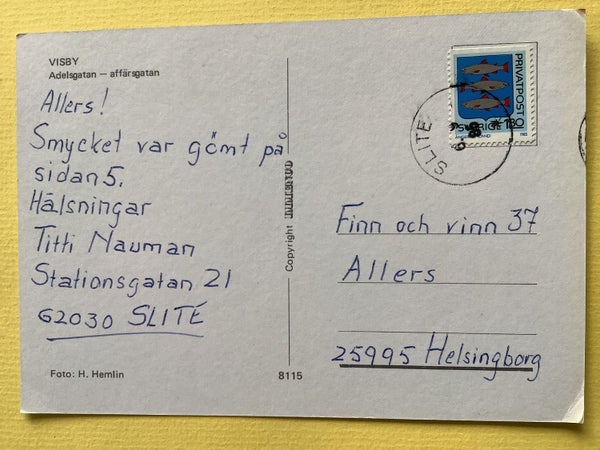 VISBY
Adelsgatan – affärsgatan
Allers!
Smycket var gömt på
sidan 5.
Hälsningar
Titti Nauman
Stationsgatan 21
62030 SLITE
Foto: H. Hemlin
8115
Copyright
PRIVATPOST
SVERIGE
SLITE
Finn och vinn 37
Allers
25995 Helsingborg